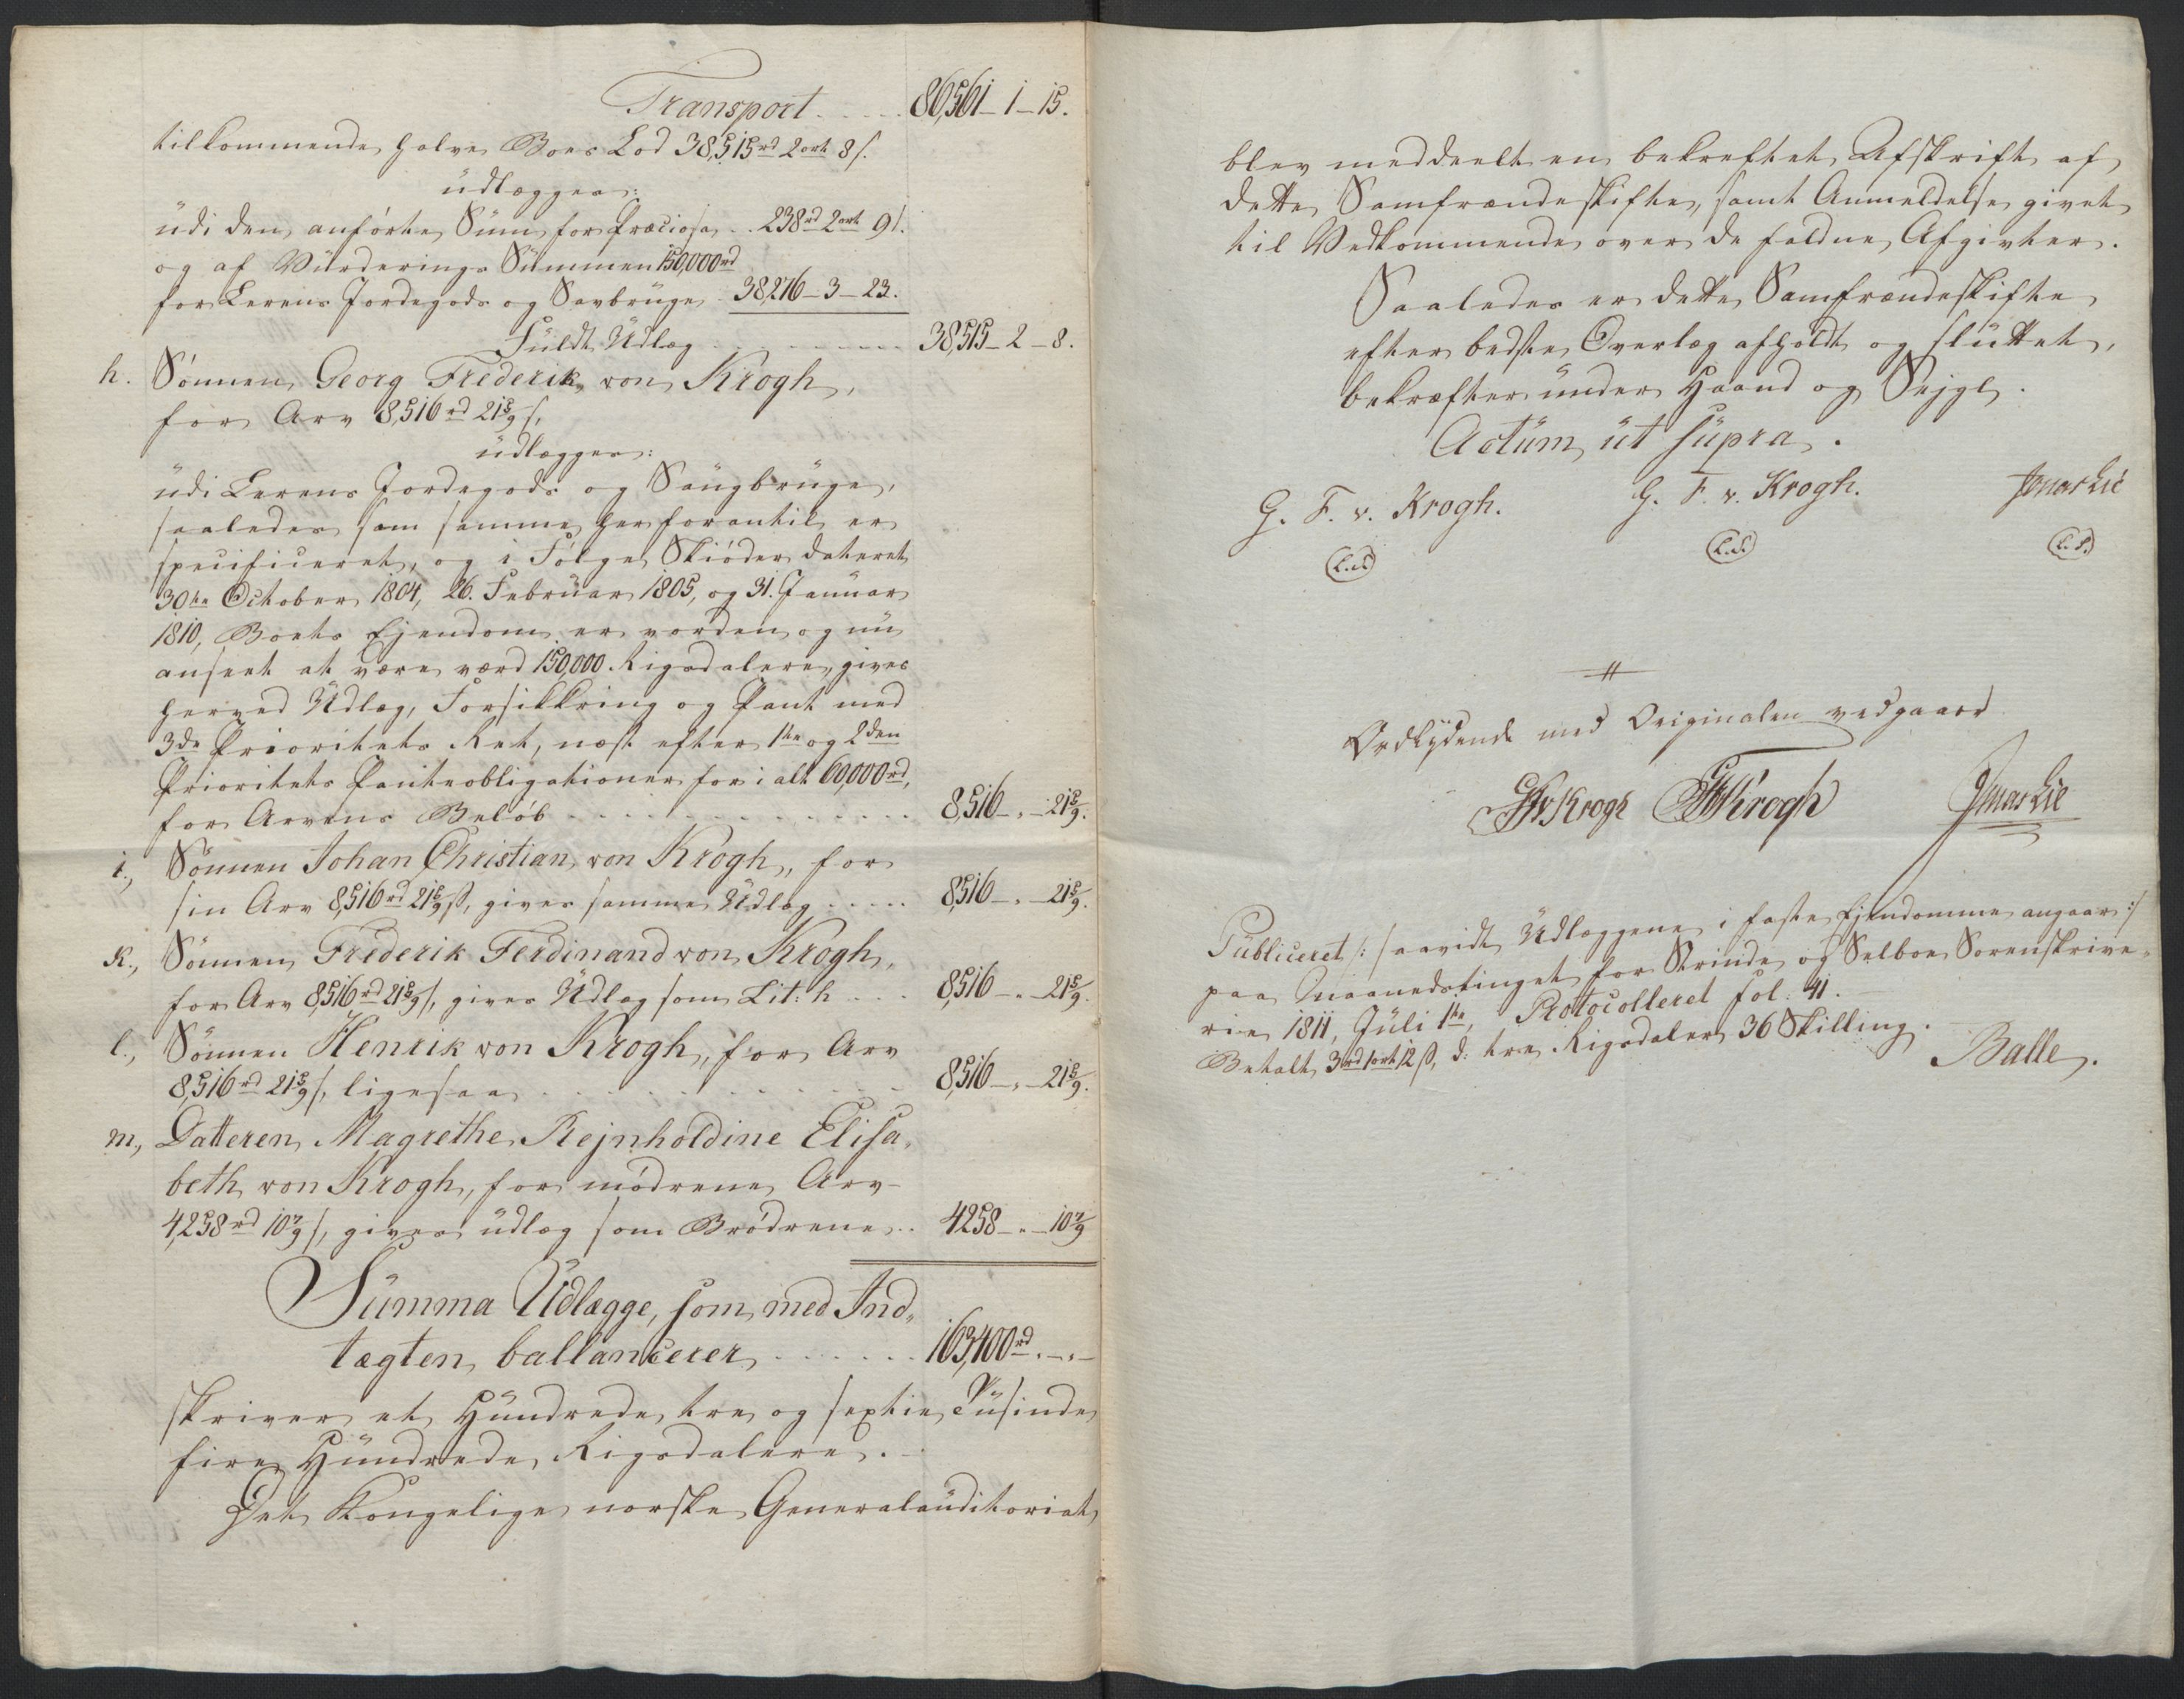 Transport . . . . . 86,561 – 1 – 15.
tilkommende halve Boes Lod 38,515 rd 2 ort 8 s.
üdlægges:
üdi den anførte Süm for Præciosa . . 238 rd 2 ort 9 s.
og af Vürderings Sümmen 150,000 rd
for Lerens Jordegods og Savbrüge . 38,276 – 3 – 23.
Füldt Üdlæg . . . . . . . . . 38,515 – 2 – 8.
h. Sønnen Georg Frederik von Krogh,
for Arv 8,516 rd 21 5/9 s,
üdlægges:
üdi Lerens Jordegods og Saugbrüge,
saaledes som samme her forantil er
specificeret, og i Følge Skiøder dateret
30te October 1804, 26. Februar 1805, og 31. Januar
1810, Boets Ejendom er vorden og nü
anseet at være værd 150,000 Rigsdalere, gives
herved Udlæg, Forsikkring og Pant med
3de Prioritets Ret, næst efter 1te og 2den
Prioritets Panteobligationer for i alt 60,000 rd,
for Arvens Beløb . . . . . . . . . . . 8,516 – „ – 21 5/9.
i., Sønnen Johan Christian von Krogh, for
sin Arv 8,516 rd 21 5/9 s, gives samme Udlæg . . . . . 8,516 – „ – 21 5/9.
k., Sønnen Frederik Ferdinand von Krogh,
for Arv 8,516 rd 21 5/9 s, gives Udlæg som Lit: h . . . 8,516 – „ – 21 5/9.
l., Sønnen Henrik von Krogh, for Arv
8,516 rd 21 5/9 s, ligesaa . . . . . . . . . 8,516 – „ – 21 5/9.
m., Datteren Magrethe Rejnholdine Elisa-
beth von Krogh, for mødrene Arv
4,258 rd 10 7/9 s, gives üdlæg som Brødrene . . 4258 – „ – 10 7/9
Summa Üdlægge, som med Ind-
tægten ballancerer . . . . . . . 163,400 rd. – „ –
skriver et Hündrede tre og sextie Tüsinde
fire Hündrede Rigsdalere.
Det Kongelige norske Generalauditoriat
blev meddeelt en bekreftet Afskrift af
dette Samfrændeskifte, samt Anmeldelse givet
til Vedkommende over de faldne Afgivter.
Saaledes er dette Samfrændeskifte
efter bedste Overlæg afholdt og slüttet,
bekræftes under Haand og Sejgl.
Actüm üt süpra.
G. F. v. Krogh. G. F. v. Krogh. Jonas Lie
(L.S.) (L.S.) (L.S.)
Ordlydende med Originalen vedgaaes
GFvKrogh GFvKrogh Jonas Lie
Pübliceret /: saavidt Üdlæggene i faste Ejendomme angaar :/
paa Maanedstinget for Strinde og Selboe Sorenskrive-
rie 1811, Jüli 1te, Protocolleret fol: 41.
Betalt 3 rd 1 ort 12 s, d: tre Rigsdaler 36 Skilling.
Balle.